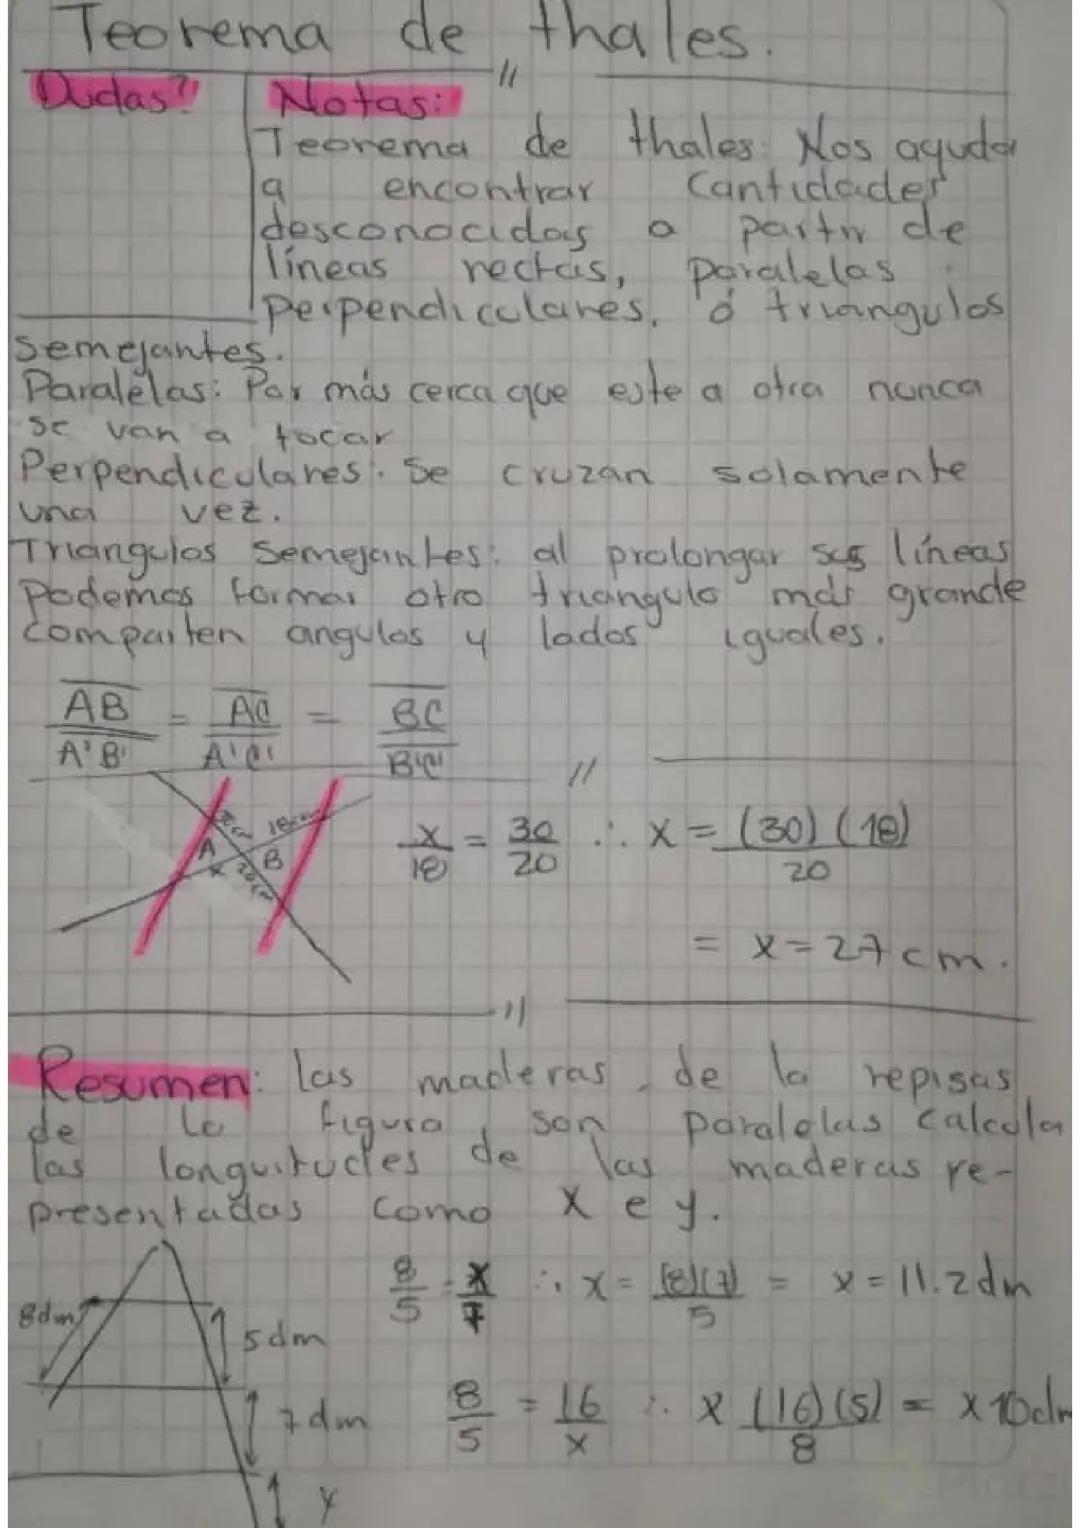 Teorema de thales.
Dudas?
Notas:
Teorema de thales: Nos ayuda
a encontrar cantidades
desconocidas a partir de
líneas rectas, paralelas
perpendiculares, ó triangulos
semejantes.
Paralelas: Por más cerca que este a otra nunca
se van a tocar
Perpendiculares: Se cruzan solamente
una vez.
Triangulos Semejantes: al prolongar sus líneas
Podemos formar otro triangulo más grande
comparten angulos y lados iguales.
AB/A'B' = AC/A'C' = BC/B'C'
18cm
A B
x 20cm
x/18 = 30/20 ∴ x = (30)(18)/20
= x = 27 cm.
Resumen: las maderas de la repisas
de la figura son paralelas calcula
las longuitudes de las maderas re-
presentadas como x e y.
8/5 = x/7 ∴ x = (8)(7)/5 = x = 11.2 dm
8dm
5dm
8/5 = 16/x ∴ x (16)(5)/8 = x 10dm
7dm
y